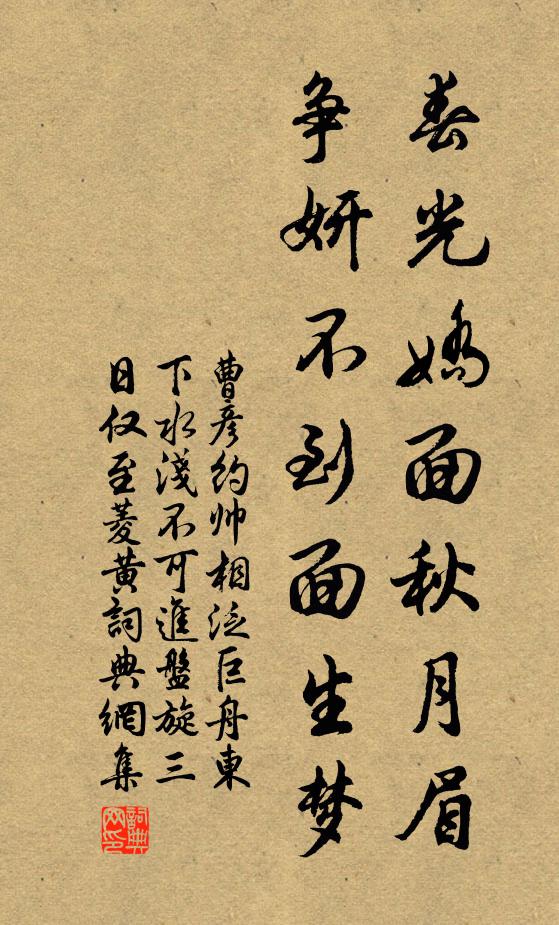 春光娇面秋月眉
争妍不到面生梦
曹彦约帅相泛巨舟東
下水淺不可進盤旋三
日仅至菱黄詞典網集
詞典
网印